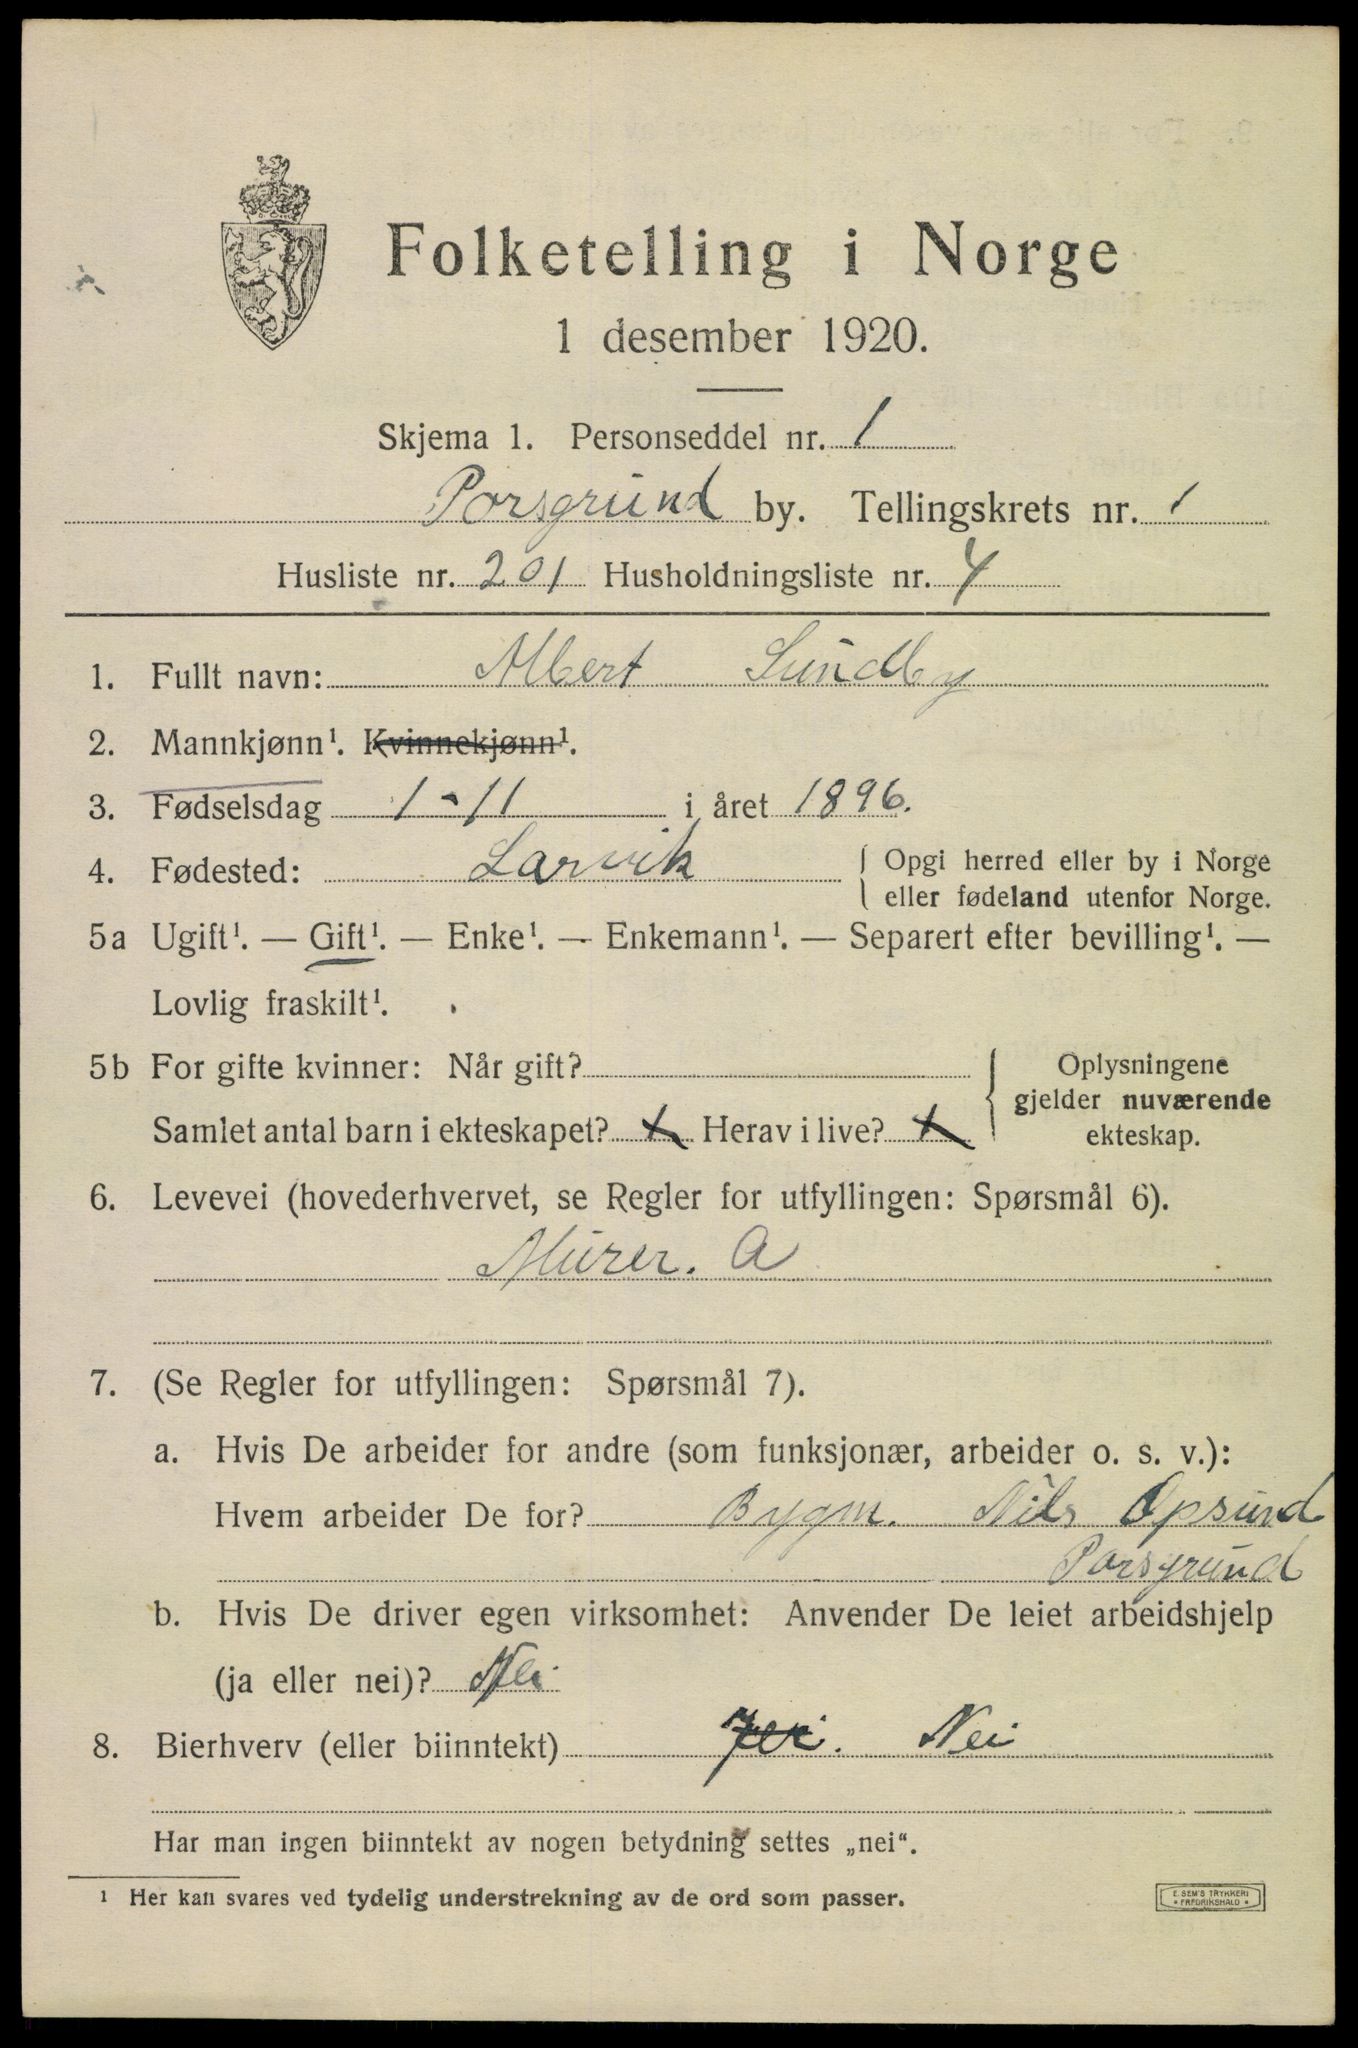 Folketelling i Norge
1 desember 1920.
Skjema 1. Personseddel nr. 1
Porsgrund by. Tellingskrets nr. 1
Husliste nr. 201 Husholdningsliste nr. 4
1. Fullt navn: Albert Sundby
2. Mannkjønn¹. Kvinnekjønn¹.
3. Fødselsdag 1-11 i året 1896.
4. Fødested: Larvik { Opgi herred eller by i Norge
eller fødeland utenfor Norge.
5a Ugift¹. — Gift¹. — Enke¹. — Enkemann¹. — Separert efter bevilling¹. —
Lovlig fraskilt¹.
5b For gifte kvinner: Når gift? { Oplysningene
gjelder nuværende
Samlet antal barn i ekteskapet? x Herav i live? x
ekteskap.
6. Levevei (hovederhvervet, se Regler for utfyllingen: Spørsmål 6).
Murer. A
7. (Se Regler for utfyllingen: Spørsmål 7).
a. Hvis De arbeider for andre (som funksjonær, arbeider o. s. v.):
Hvem arbeider De for? Bygm. Nils Opsund
Porsgrund
b. Hvis De driver egen virksomhet: Anvender De leiet arbeidshjelp
(ja eller nei)? Nei
8. Bierhverv (eller biinntekt) Nei
Har man ingen biinntekt av nogen betydning settes „nei“.
¹ Her kan svares ved tydelig understrekning av de ord som passer.
E. SEM'S TRYKKERI
* FREDRIKSHALD *